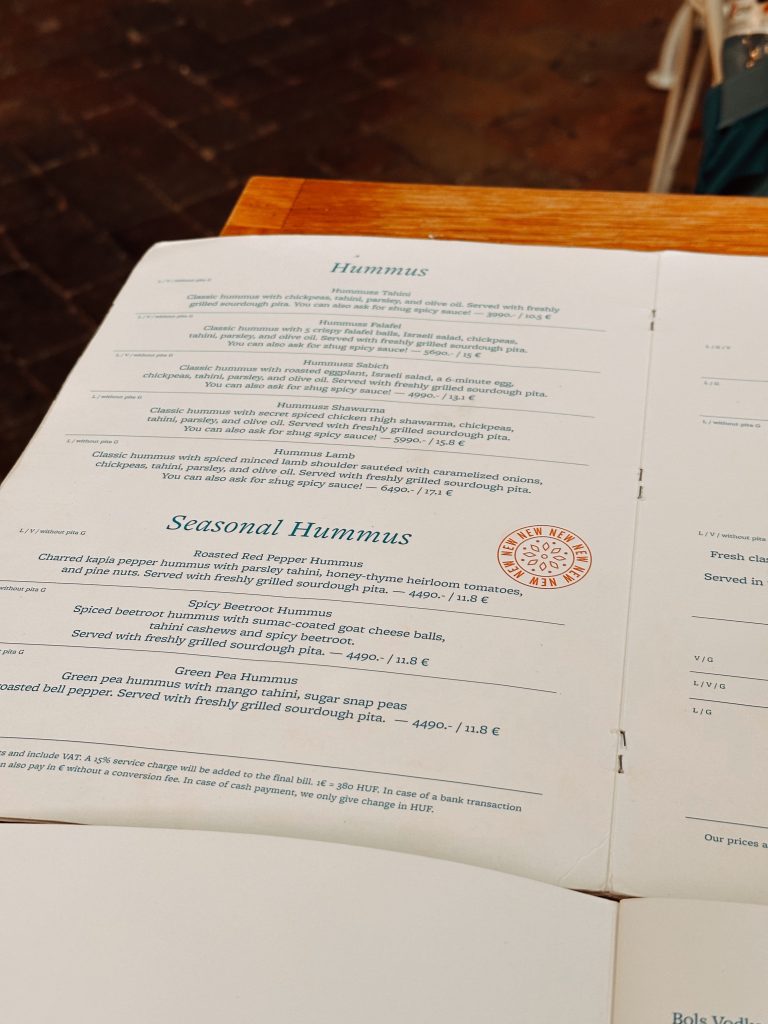 Hummus
L / V / without pita G
Hummusz Tahini
Classic hummus with chickpeas, tahini, parsley, and olive oil. Served with freshly
grilled sourdough pita. You can also ask for zhug spicy sauce! — 3990.- / 10.5 €
L / V / without pita G
Hummusz Falafel
Classic hummus with 5 crispy falafel balls, Israeli salad, chickpeas,
tahini, parsley, and olive oil. Served with freshly grilled sourdough pita.
You can also ask for zhug spicy sauce! — 5690.- / 15 €
L / V / without pita G
Hummusz Sabich
Classic hummus with roasted eggplant, Israeli salad, a 6-minute egg,
chickpeas, tahini, parsley, and olive oil. Served with freshly grilled sourdough pita.
You can also ask for zhug spicy sauce! — 4990.- / 13.1 €
L / without pita G
Hummusz Shawarma
Classic hummus with secret spiced chicken thigh shawarma, chickpeas,
tahini, parsley, and olive oil. Served with freshly grilled sourdough pita.
You can also ask for zhug spicy sauce! — 5990.- / 15.8 €
L / without pita G
Hummus Lamb
Classic hummus with spiced minced lamb shoulder sautéed with caramelized onions,
chickpeas, tahini, parsley, and olive oil. Served with freshly grilled sourdough pita.
You can also ask for zhug spicy sauce! — 6490.- / 17.1 €
Seasonal Hummus
NEW NEW NEW NEW NEW NEW NEW NEW
L / V / without pita G
Roasted Red Pepper Hummus
Charred kapia pepper hummus with parsley tahini, honey-thyme heirloom tomatoes,
and pine nuts. Served with freshly grilled sourdough pita. — 4490.- / 11.8 €
without pita G
Spicy Beetroot Hummus
Spiced beetroot hummus with sumac-coated goat cheese balls,
tahini cashews and spicy beetroot.
Served with freshly grilled sourdough pita. — 4490.- / 11.8 €
pita G
Green Pea Hummus
Green pea hummus with mango tahini, sugar snap peas
oasted bell pepper. Served with freshly grilled sourdough pita. — 4490.- / 11.8 €
s and include VAT. A 15% service charge will be added to the final bill. 1€ = 380 HUF. In case of a bank transaction
n also pay in € without a conversion fee. In case of cash payment, we only give change in HUF.
L / G
L / V / without G
L / V / without pita
Fresh clas
Served in
V / G
L / V / G
L / G
Our prices a
Bols Vodk